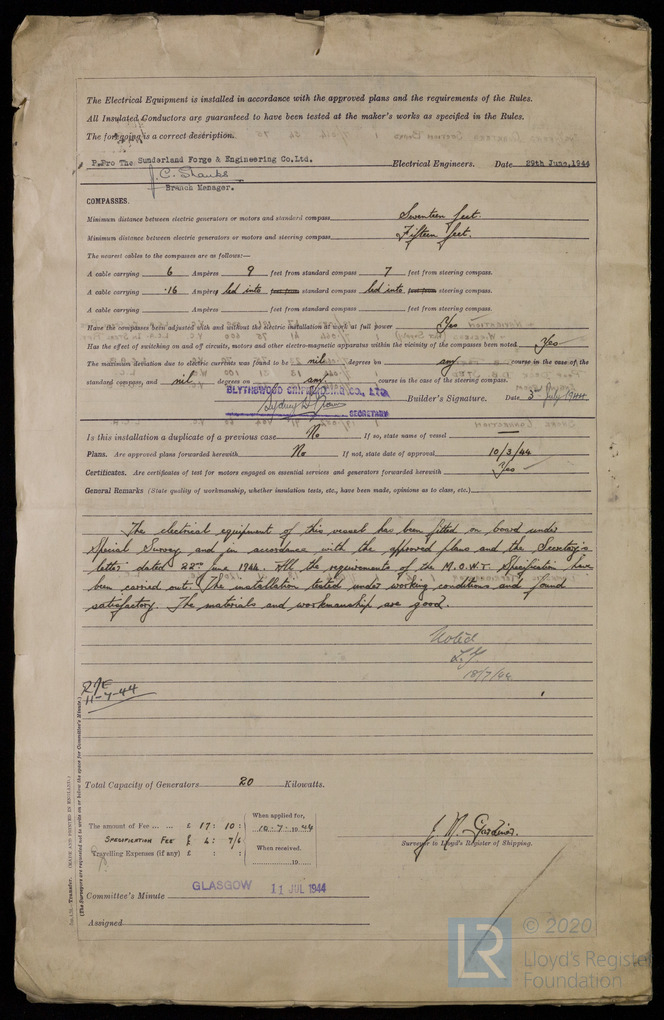 The Electrical Equipment is installed in accordance with the approved plans and the requirements of the Rules.
All Insulated Conductors are guaranteed to have been tested at the maker's works as specified in the Rules.
The foregoing is a correct description.
P.Pro The Sunderland Forge & Engineering Co.Ltd. Electrical Engineers. Date 29th June, 1944
J. C. Shanks
Branch Manager.
COMPASSES.
Minimum distance between electric generators or motors and standard compass Seventeen feet.
Minimum distance between electric generators or motors and steering compass Fifteen feet.
The nearest cables to the compasses are as follows:—
A cable carrying 6 Ampères 9 feet from standard compass 7 feet from steering compass.
A cable carrying .16 Ampères led into feet from standard compass led into feet from steering compass.
A cable carrying Ampères feet from standard compass feet from steering compass.
Have the compasses been adjusted with and without the electric installation at work at full power Yes
Has the effect of switching on and off circuits, motors and other electro-magnetic apparatus within the vicinity of the compasses been noted Yes
The maximum deviation due to electric currents was found to be nil degrees on any course in the case of the
standard compass, and nil degrees on any course in the case of the steering compass.
BLYTHSWOOD SHIPBUILDING CO., LTD.
Builder's Signature. Date 5th July 1944
SECRETARY
Is this installation a duplicate of a previous case No If so, state name of vessel —
Plans. Are approved plans forwarded herewith No If not, state date of approval 10/3/44
Certificates. Are certificates of test for motors engaged on essential services and generators forwarded herewith Yes
General Remarks (State quality of workmanship, whether insulation tests, etc., have been made, opinions as to class, etc.)
The electrical equipment of this vessel has been fitted on board under
Special Survey and in accordance with the approved plans and the Secretary's
letter dated 22nd June 1944. All the requirements of the M.O.W.T. Specification have
been carried out. The installation tested under working conditions and found
satisfactory. The materials and workmanship are good.
Noted
18/7/44
11-7-44
Total Capacity of Generators 20 Kilowatts.
The amount of Fee ... ... £ 17 : 10 :
When applied for,
10.7.1944
SPECIFICATION FEE £ 4 : 7/6
Travelling Expenses (if any) £ : :
When received.
19
J. N. Gardiner.
Surveyor to Lloyd's Register of Shipping.
Committee's Minute GLASGOW 11 JUL 1944
Assigned
Transfer. (MADE AND PRINTED IN ENGLAND.)
(The Surveyors are requested not to write on or below the space for Committee's Minute.)
LR
© 2020
Lloyd's Register
Foundation